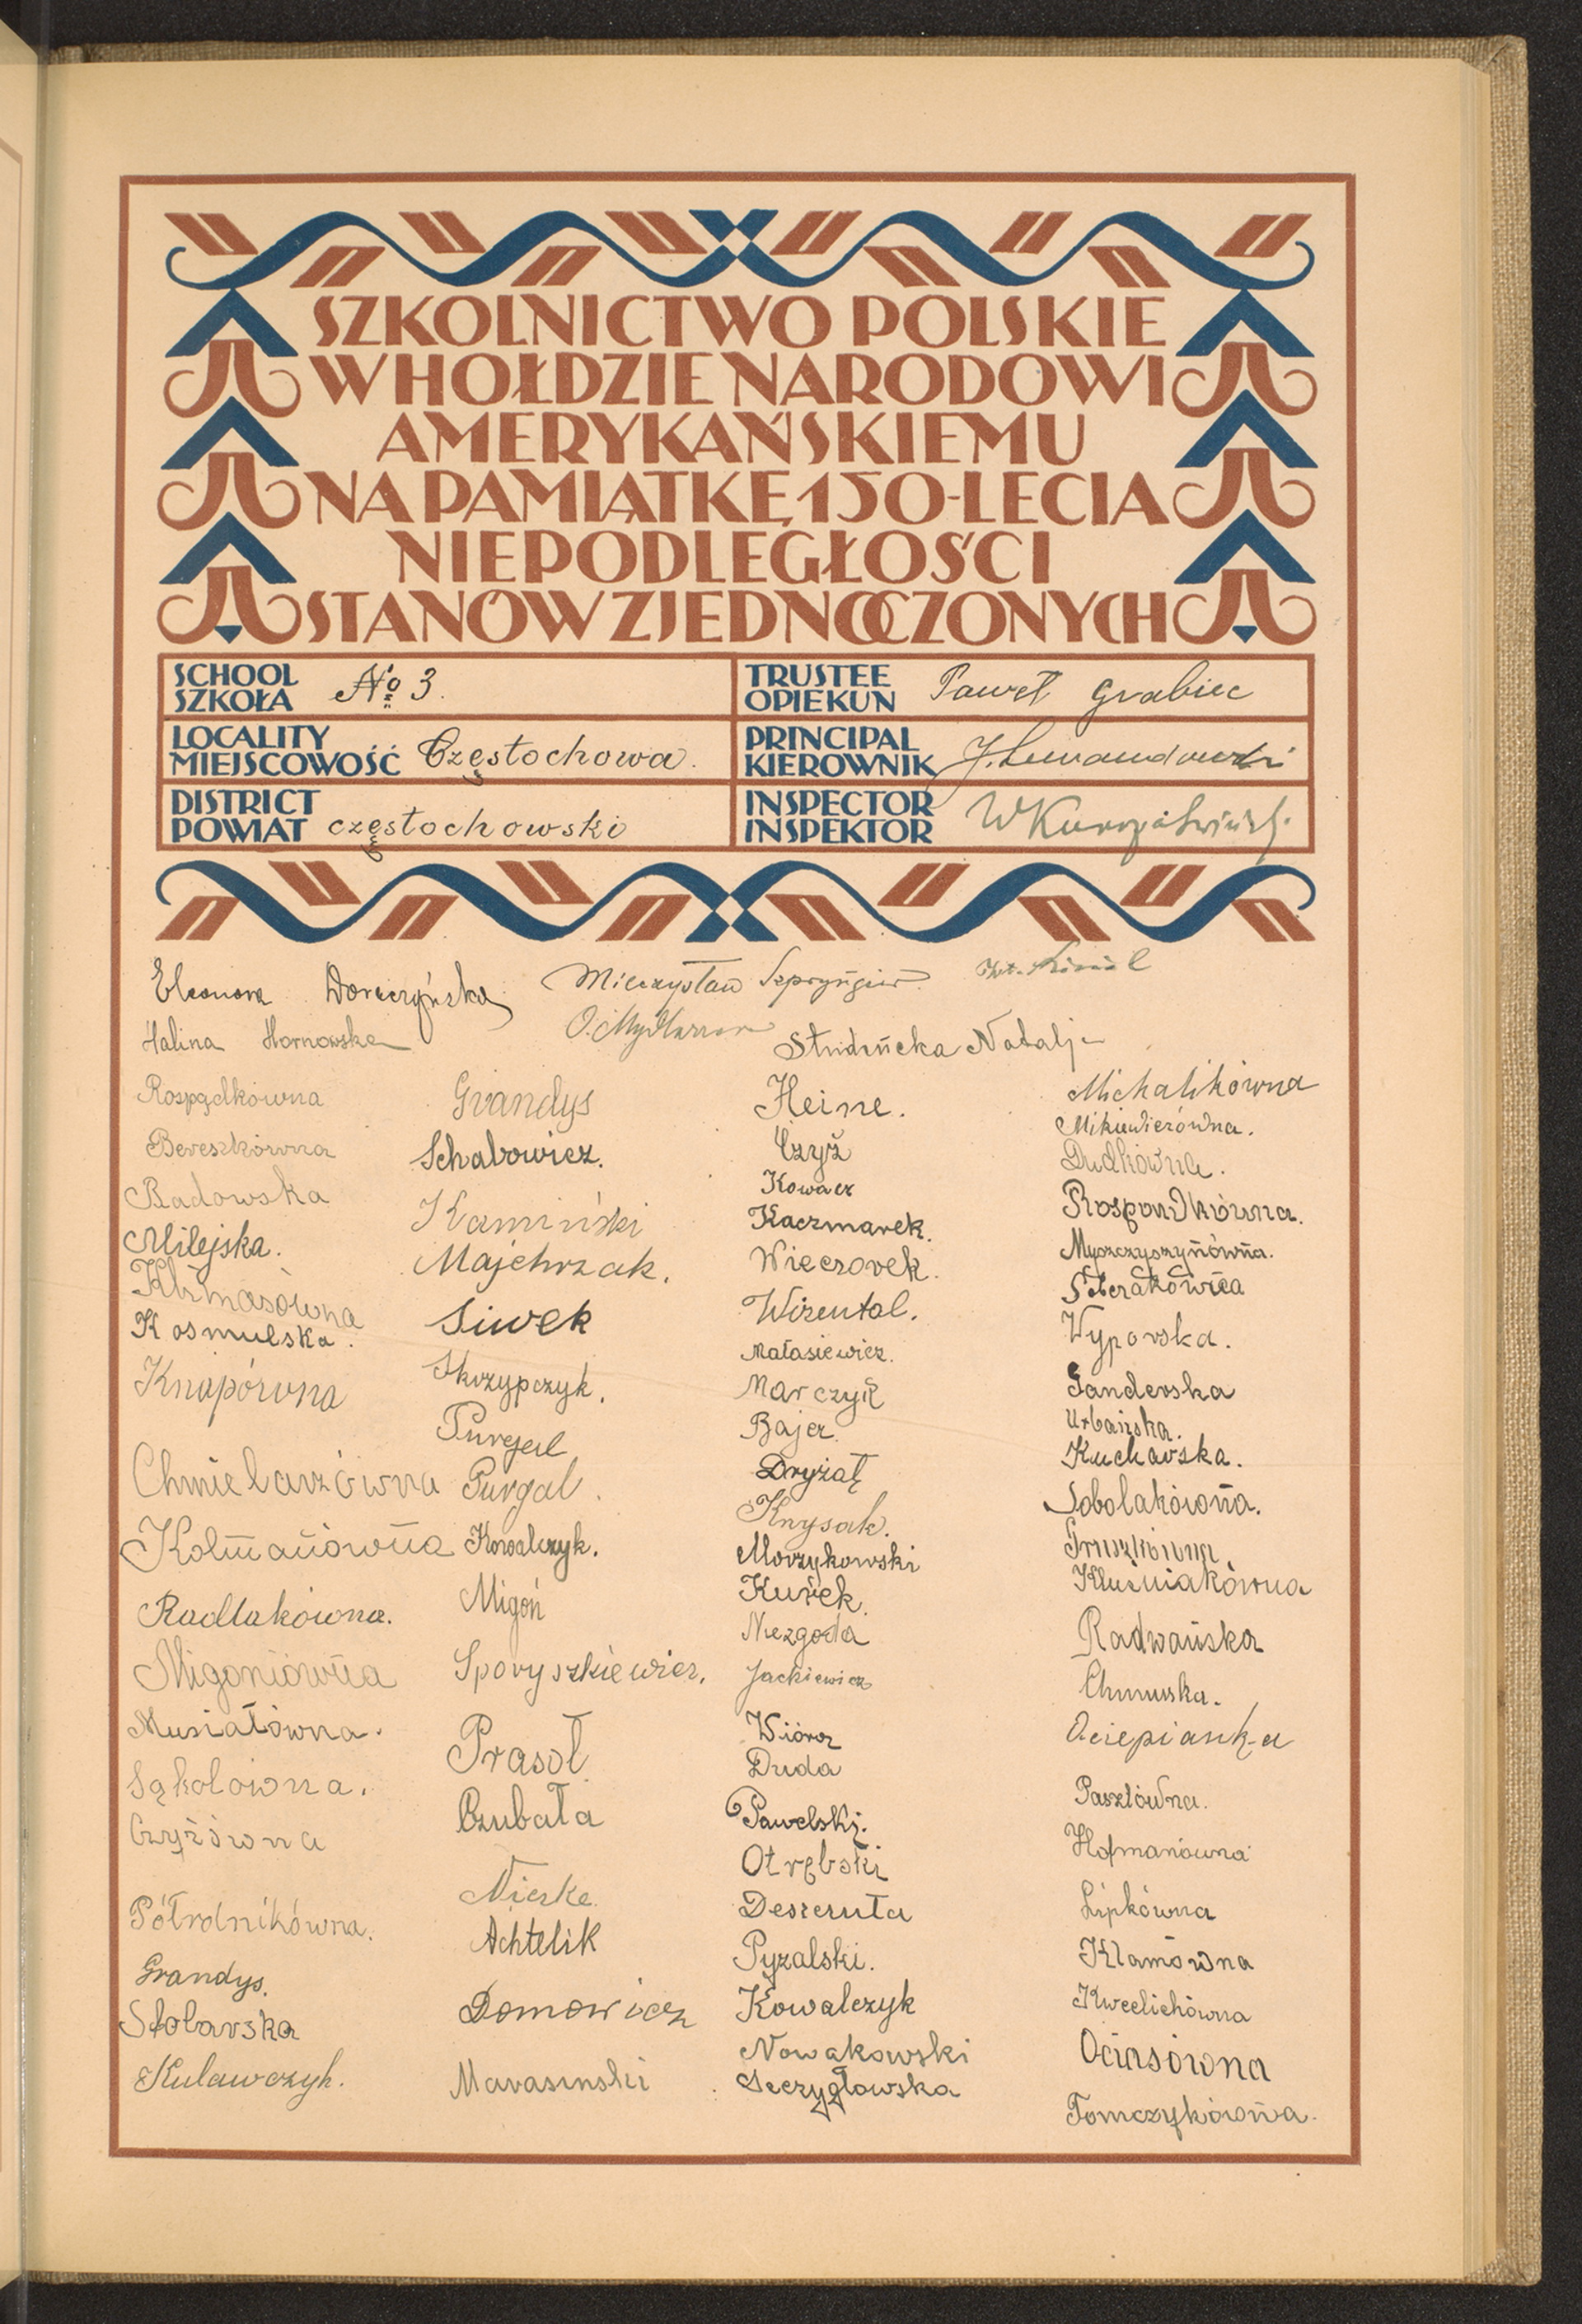 SZKOLNICTWO POLSKIE
W HOŁDZIE NARODOWI
AMERYKAŃSKIEMU
NA PAMIĄTKĘ 150-LECIA
NIEPODLEGŁOŚCI
STANÓW ZJEDNOCZONYCH
SCHOOL
SZKOŁA No 3.
TRUSTEE
OPIEKUN Paweł Grabiec
LOCALITY
MIEJSCOWOŚĆ Częstochowa.
PRINCIPAL
KIEROWNIK J. Lewandowski
DISTRICT
POWIAT częstochowski
INSPECTOR
INSPEKTOR
Eleonora
Mieczysław
Halina Hornowska
Studencka Natalja
Rospądkówna
Bereszkówna
Badowska
Milejska.
Klimasówna
Kosmulska.
Knapówna
Chmielarzówna
Kolmanówna
Radlakówna.
Migoniówna
Musiałówna.
Sąkolówna.
Czyżówna
Półrolnikówna.
Grandys.
Stobarska
Kulawczyk.
Grandys
Schabowicz.
Kamiński
Majchrzak.
Siwek
Skrzypczyk.
Purgal
Purgal.
Kowalczyk.
Migoń
Sporyszkiewicz.
Prasoł
Czubała
Nieske.
Achtelik
Domowicz
Marasinski
Heine.
Czyż
Kowacz
Kaczmarek.
Wieczorek.
Wizental.
Małasiewicz.
Marczyk
Bajer.
Dryzał
Knysak.
Morzykowski
Kurek.
Niezgoda
Jackiewicz
Wiórz
Duda
Pawelski.
Otrębski
Deszruta
Pyzalski.
Kowalczyk
Nowakowski
Szczygłowska
Michalikówna
Mikiewiczówna.
Dudkówna.
Rospondkówna.
Myszczyszynówna.
Szterakówna
Wyporska.
Ganderska
Urbańska.
Kucharska.
Sobolakówna.
Gruszkówna.
Kluźniakówna
Radwańska
Chmurska.
Ociepianka
Paszlówna.
Hofmanówna
Lipkówna
Klamówna
Kweclichówna
Ociasówna
Tomczykówna.